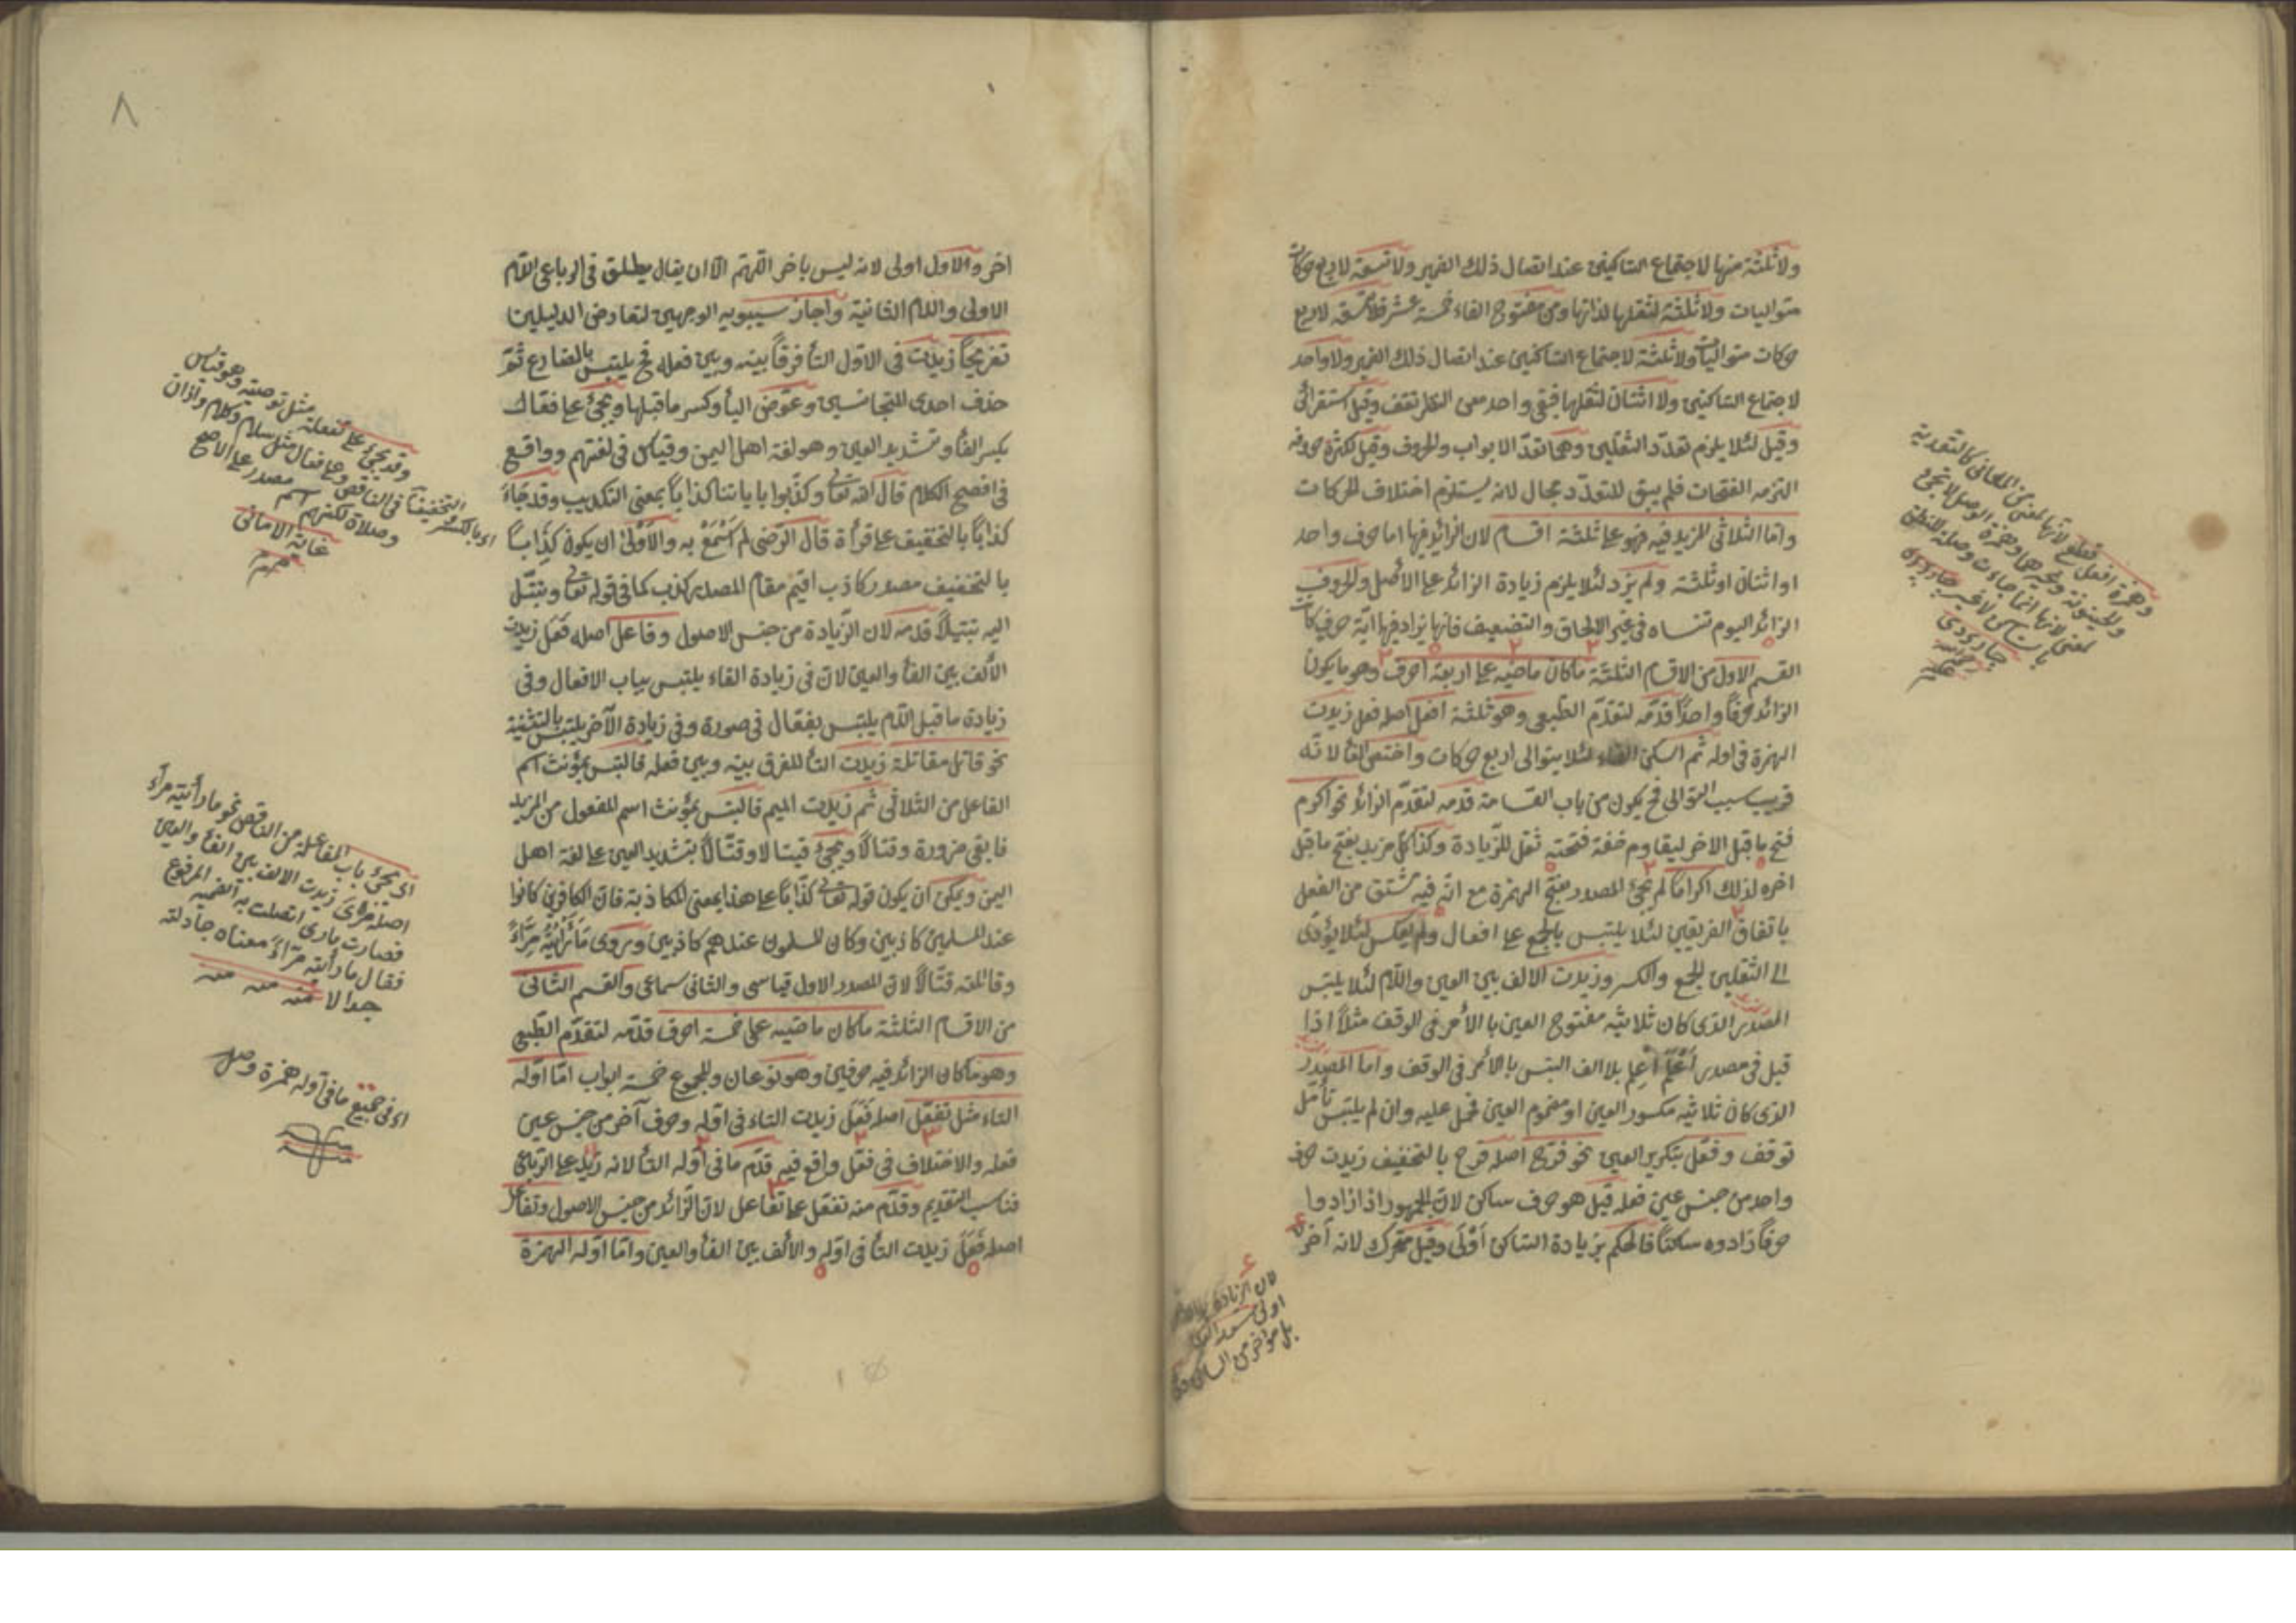 ولا ثلثة منها لاجتماع الساكنين عند اتصال ذلك الضمير ولا تسعة لاربع حركات
متواليات ولا ثلثة لثقلها لذاتها ومن مفتوح الفاء خمسة عشر فلا تسعة لاربع
حركات متواليات ولا ثلثة لاجتماع الساكنين عند اتصال ذلك الضمير ولا واحد
لاجتماع الساكنين ولا اثنان لثقلها فبقى واحد معن النظر تقف وقيل استقرائى
وقيل لئلا يلزم تعدد الثقلين وهما تعدد الابواب والحروف وقيل لكثرة حروفه
التزمه الفتحات فلم يبق للتعدد مجال لانه يستلزم اختلاف الحركات
واما الثلاثى المزيد فيه فهو على ثلثة اقسام لان الزائد فيها اما حرف واحد
او اثنان او ثلثة ولم يزد لئلا يلزم زيادة الزائد على الأصل والحروف
الزائد اليوم تنساه فى غير الالحاق والتضعيف فانها يزاد فيها اية حرف كانت
القسم الاول من الاقسام الثلثة ماكان ماضيه على اربعة احرف وهو ما يكون
الزائد حرفا واحدا قدمه لتقدم الطبعى وهو ثلثة افعل اصله فعل زيدت
الهمزة فى اوله ثم اسكن الفاء لئلا يتوالى اربع حركات واختص الفأ لانه
قريب سبب التوالى فح يكون من باب القسامة قدمه لتقدم الزائد نحو اكرم
فتح ما قبل الاخر ليقاوم خفة فتحته ثقل للزيادة وكذا كل مزيد يفتح ما قبل
اخره لذلك اكراما لم يجئ المصدر بفتح الهمزة مع انه فيه مشتق من الفعل
باتفاق الفريقين لئلا يلتبس بالجمع على افعال ولم يعكس لئلا يؤدى
الى الثقلين الجمع والكسر وزيدت الالف بين العين واللام لئلا يلتبس
المصدر الذى كان ثلاثيه مفتوح العين بالأمر فى الوقف مثلا اذا
قيل فى مصدر أعلم اعلم بلا الف التبس بالأمر فى الوقف واما المصدر
الذى كان ثلاثيه مكسور العين او مضموم العين فحمل عليه وان لم يلتبس تأمل
توقف وفعل بتكرير العين نحو فرح اصله فرح بالتخفيف زيدت حرف
واحد من جنس عين فعله قيل هو حرف ساكن لان الجمهور اذا زادوا
حرفا زادوه ساكنا فالحكم بزيادة الساكن أولى وقيل متحرك لانه آخر
وهمزة افعل قطع لانها لمعنى من المعانى كالتعدية
والحينونة وغيرهما وهمزة الوصل لا تجئ
لمعنى لانها انما جاءت وصلة للنطق
بالساكن لا غير جاربردى
جاربردى
رحمه الله
لان الزيادة بالاخر
اولى
بل هو اخر من الساكن
٨
اخر والاول اولى لانه ليس باخر اللهم الا ان يقال يطلق فى الرباعى اللام
الاولى واللام الثانية واجاز سيبويه الوجهين لتعارض الدليلين
تفريحا زيدت فى الاول التأ فرقا بينه وبين فعله فح يلتبس بالمضارع ثم
حذف احدى المتجانسين وعوض اليأ وكسر ماقبلها ويجئ على فعال
بكسر الفأ وتشديد العين وهو لغة اهل اليمن وقياس فى لغتهم وواقع
فى افصح الكلام قال الله تعالى وكذبوا باياتنا كذابا بمعنى التكذيب وقد جاء
كذابا بالتخفيف على قرأة قال الرضى لم أسمع به والأولى ان يكون كذابا
بالتخفيف مصدر كاذب اقيم مقام المصدر كذب كما فى قوله تعالى وتبتل
اليه تبتيلا قدمه لان الزيادة من جنس الاصول وفاعل اصله فعل زيدت
الألف بين الفأ والعين لان فى زيادة الفاء يلتبس بباب الافعال وفى
زيادة ما قبل اللام يلتبس بفعال فى صورة وفى زيادة الآخر يلتبس بالتثنية
نحو قاتل مقاتلة زيدت التأ للفرق بينه وبين فعله فالتبس بمؤنث اسم
الفاعل من الثلاثى ثم زيدت الميم فالتبس بمؤنث اسم المفعول من المزيد
فابقى ضرورة وقتالا ويجئ قيتالا وقتالا بتشديد العين على لغة اهل
اليمن ويمكن ان يكون قوله تعالى كذابا على هذا بمعنى المكاذبة فان الكافرين كانوا
عند المسلمين كاذبين وكان المسلمون عندهم كاذبين ويروى مارأيته مراء
وقاتلته قتالا لان المصدر الاول قياسى والثانى سماعى والقسم الثانى
من الاقسام الثلثة ماكان ماضيه على خمسة احرف قدمه لتقدم الطبعى
وهو ماكان الزائد فيه حرفين وهو نوعان والمجموع خمسة ابواب اما اوله
التاء مثل تفعل اصله فعل زيدت التاء فى اوله وحرف آخر من جنس عين
فعله والاختلاف فى فعل واقع فيه قدم ما فى اوله التأ لانه زيد على الرباعى
فناسب التقديم وقدم منه تفعل على تفاعل لان الزائد من جنس الاصول وتفاعل
اصله فعل زيدت التأ فى اوله والألف بين الفأ والعين واما اوله الهمزة
وقد يجئ على تفعلة مثل توصية وهو قياس
فى الناقص وعلى فعال مثل سلام وكلام واذان
وصلاة لكنهم اسم مصدر على الاصح
غاية الامانى
اى بالكسر التخفيف
اى يجئ باب المفاعلة من الناقص نحو ما رأيته مرآء
اصله زيدت الالف بين الفأ والعين
فصارت مارى اتصلت به الضمير المرفوع
فقال ما رأيته مرآء معناه جادلته
جدالا منه منه منه
اى فى جميع ما فى اوله همزة وصل